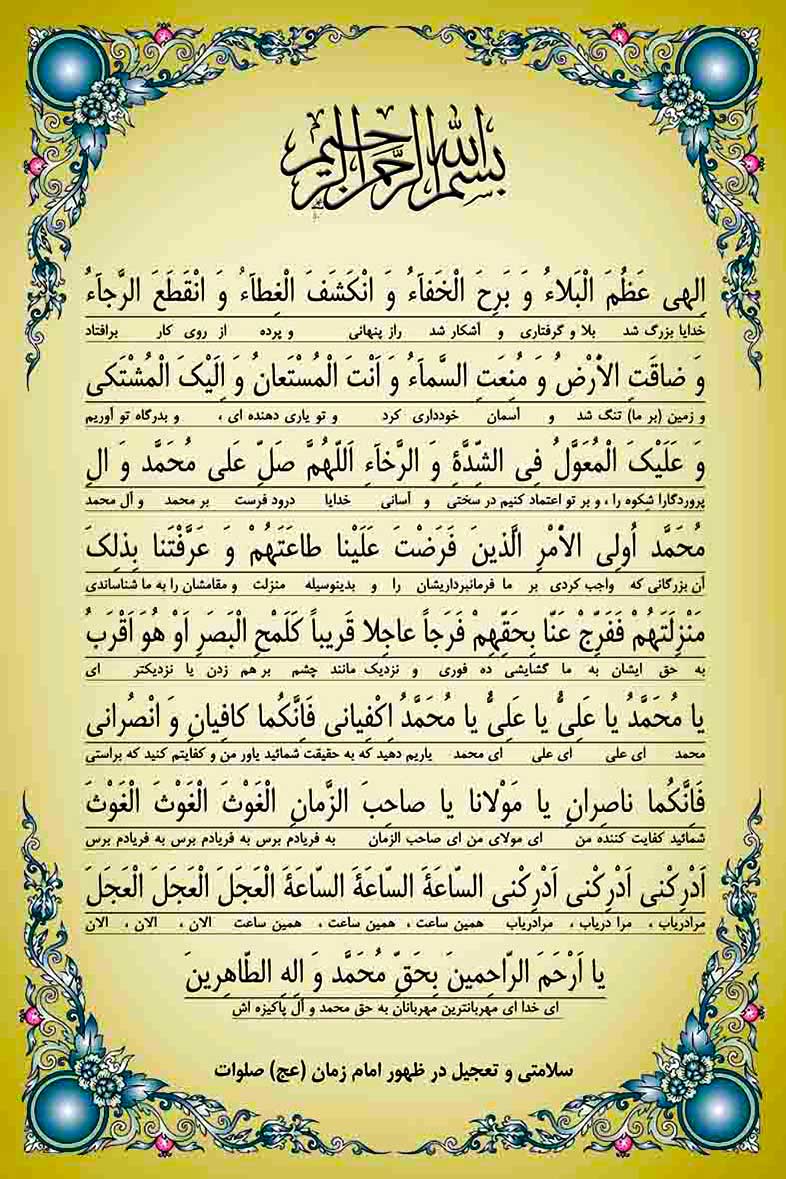 بسم الله الرحمن الرحیم
اِلهی عَظُمَ الْبَلاءُ وَ بَرِحَ الْخَفاَّءُ وَ انْکَشَفَ الْغِطاَّءُ وَ انْقَطَعَ الرَّجاَّءُ
خدایا بزرگ شد بلا و گرفتاری و آشکار شد راز پنهانی و پرده از روی کار برافتاد
وَ ضاقَتِ الاَْرْضُ وَ مُنِعَتِ السَّماَّءُ وَ اَنْتَ الْمُسْتَعانُ وَ اِلَیْکَ الْمُشْتَکی
و زمین (بر ما) تنگ شد و آسمان خودداری کرد و تو یاری دهنده ای ، و بدرگاه تو آوریم
وَ عَلَیْکَ الْمُعَوَّلُ فِی الشِّدَّةِ وَ الرَّخاَّءِ اَللّهُمَّ صَلِّ عَلی مُحَمَّد وَ الِ
پروردگارا شکوه را ، و بر تو اعتماد کنیم در سختی و آسانی خدایا درود فرست بر محمد و آل محمد
مُحَمَّد اُولِی الاَْمْرِ الَّذینَ فَرَضْتَ عَلَیْنا طاعَتَهُمْ وَ عَرَّفْتَنا بِذلِکَ
آن بزرگانی که واجب کردی بر ما فرمانبرداریشان را و بدینوسیله منزلت و مقامشان را به ما شناساندی
مَنْزِلَتَهُمْ فَفَرِّجْ عَنّا بِحَقِّهِمْ فَرَجاً عاجِلا قَریباً کَلَمْحِ الْبَصَرِ اَوْ هُوَ اَقْرَبُ
به حق ایشان به ما گشایشی ده فوری و نزدیک مانند چشم بر هم زدن یا نزدیکتر ای
یا مُحَمَّدُ یا عَلِیُّ یا عَلِیُّ یا مُحَمَّدُ اِکْفِیانی فَاِنَّکُما کافِیانِ وَ انْصُرانی
محمد ای علی ای علی ای محمد یاریم دهید که به حقیقت شمائید یاور من و کفایتم کنید که براستی
فَاِنَّکُما ناصِرانِ یا مَوْلانا یا صاحِبَ الزَّمانِ الْغَوْثَ الْغَوْثَ الْغَوْثَ
شمائید کفایت کننده من ای مولای من ای صاحب الزمان به فریادم برس به فریادم برس به فریادم برس
اَدْرِکْنی اَدْرِکْنی اَدْرِکْنی السّاعَةَ السّاعَةَ السّاعَةَ الْعَجَلَ الْعَجَلَ الْعَجَلَ
مرادریاب ، مرا دریاب ، مرادریاب همین ساعت ، همین ساعت ، همین ساعت الان ، الان ، الان
یا اَرْحَمَ الرّاحِمینَ بِحَقِّ مُحَمَّد وَ الِهِ الطّاهِرینَ
ای خدا ای مهربانترین مهربانان به حق محمد و آل پاکیزه اش
سلامتی و تعجیل در ظهور امام زمان (عج) صلوات